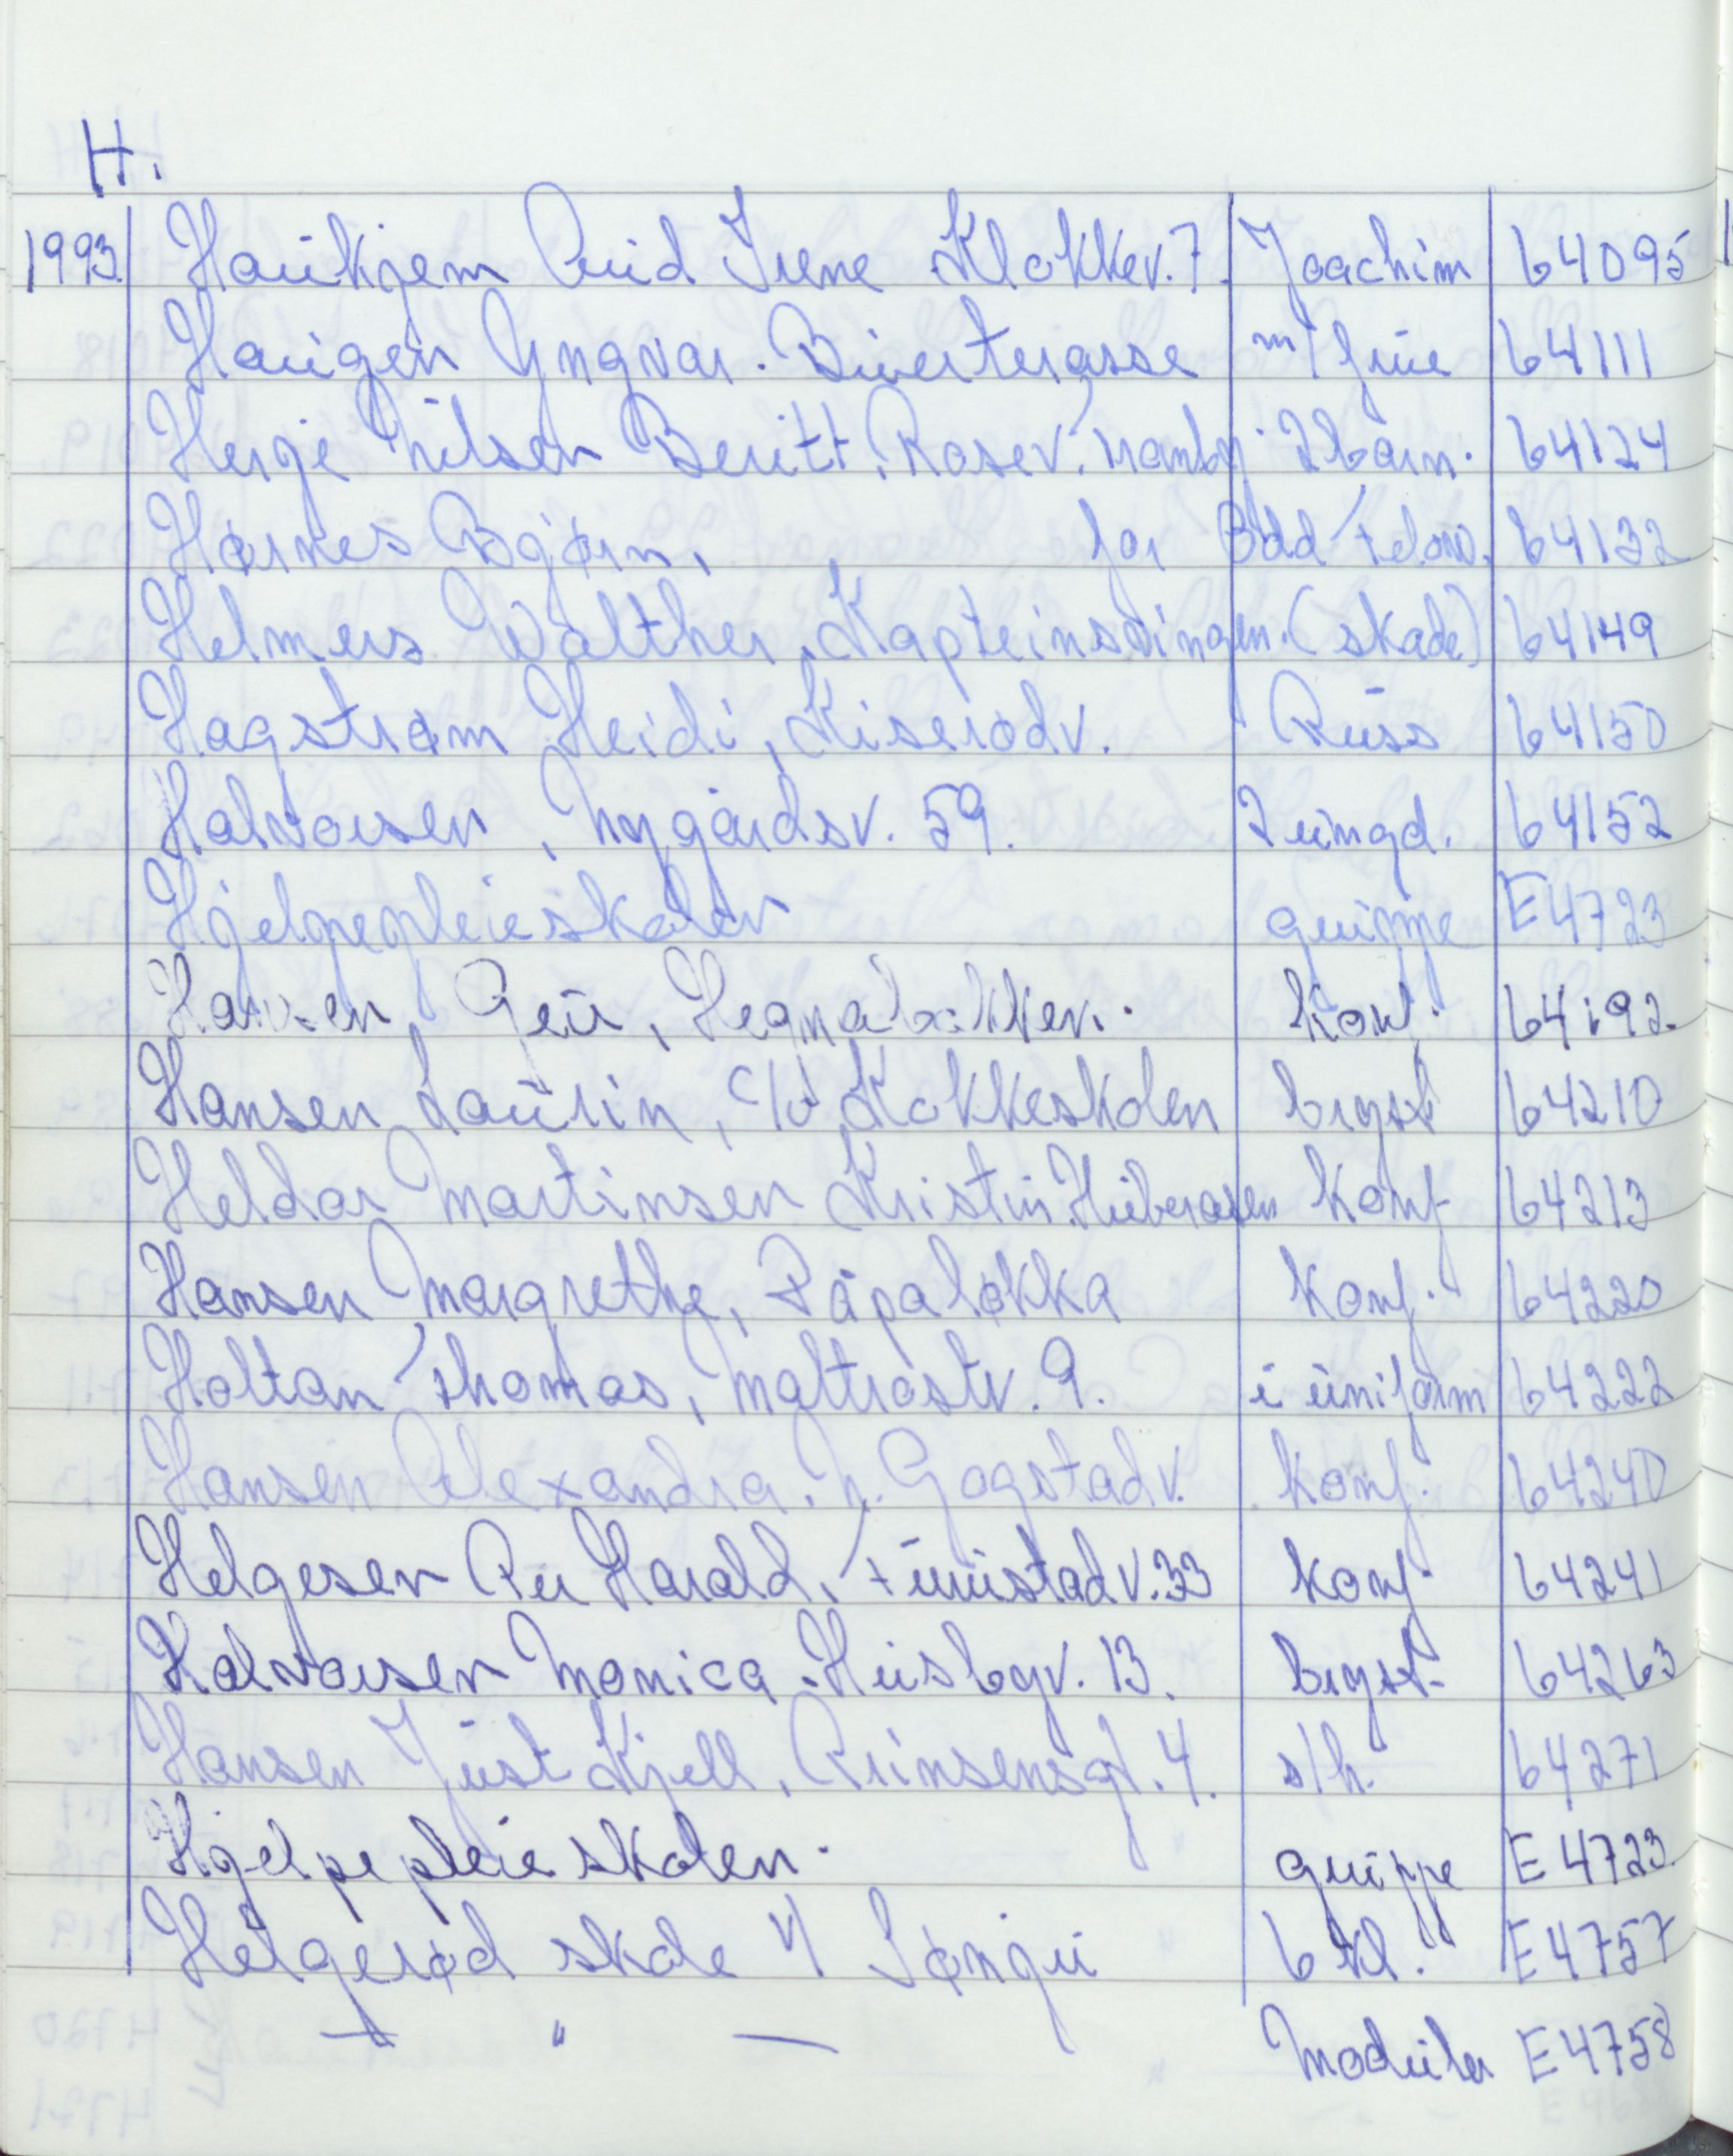 H.
1993 Haukjem Auid Irene Klokkev. 7. Joachim 64095
Haugen Yngvar. Bverterasse m/ frue 64111
Herje Nilsen Beritt. Rosev. Tranby 2 barn. 64124
Hørnes Bjørn, for Odd Felow. 64132
Helmers Walther, Kapteinsvingen. (skade) 64149
Hagstrøm Heidi, Kiserødv. Russ 64150
Halvorsen, Nygårdsv. 59. 2 ungd. 64152
Hjelpepleieskolen gruppe E4723
Hansen, Geir, Hegnabakken. konf. 64192
Hansen Laurin, c/o Kokkeskolen bryst 64210
Heldar Martinsen Kristin. konf 64213
Hansen Margrethe, Råpaløkka konf. 64220
Holtan Thomas, Maltrostv. 9. i uniform 64222
Hansen Alexandra. N. Gogstadv. konf. 64240
Helgesen Per Harald, Furustadv. 33 konf 64241
Halvorsen Monica. Husbyv. 13. bryst. 64263
Hansen Just Kjell, Prinsensgt. 4. s/h. 64271
Hjelpepleieskolen. gruppe E4723
Helgerød skole v/ Songu 6 kl. E4757
— " — Moduler E4758